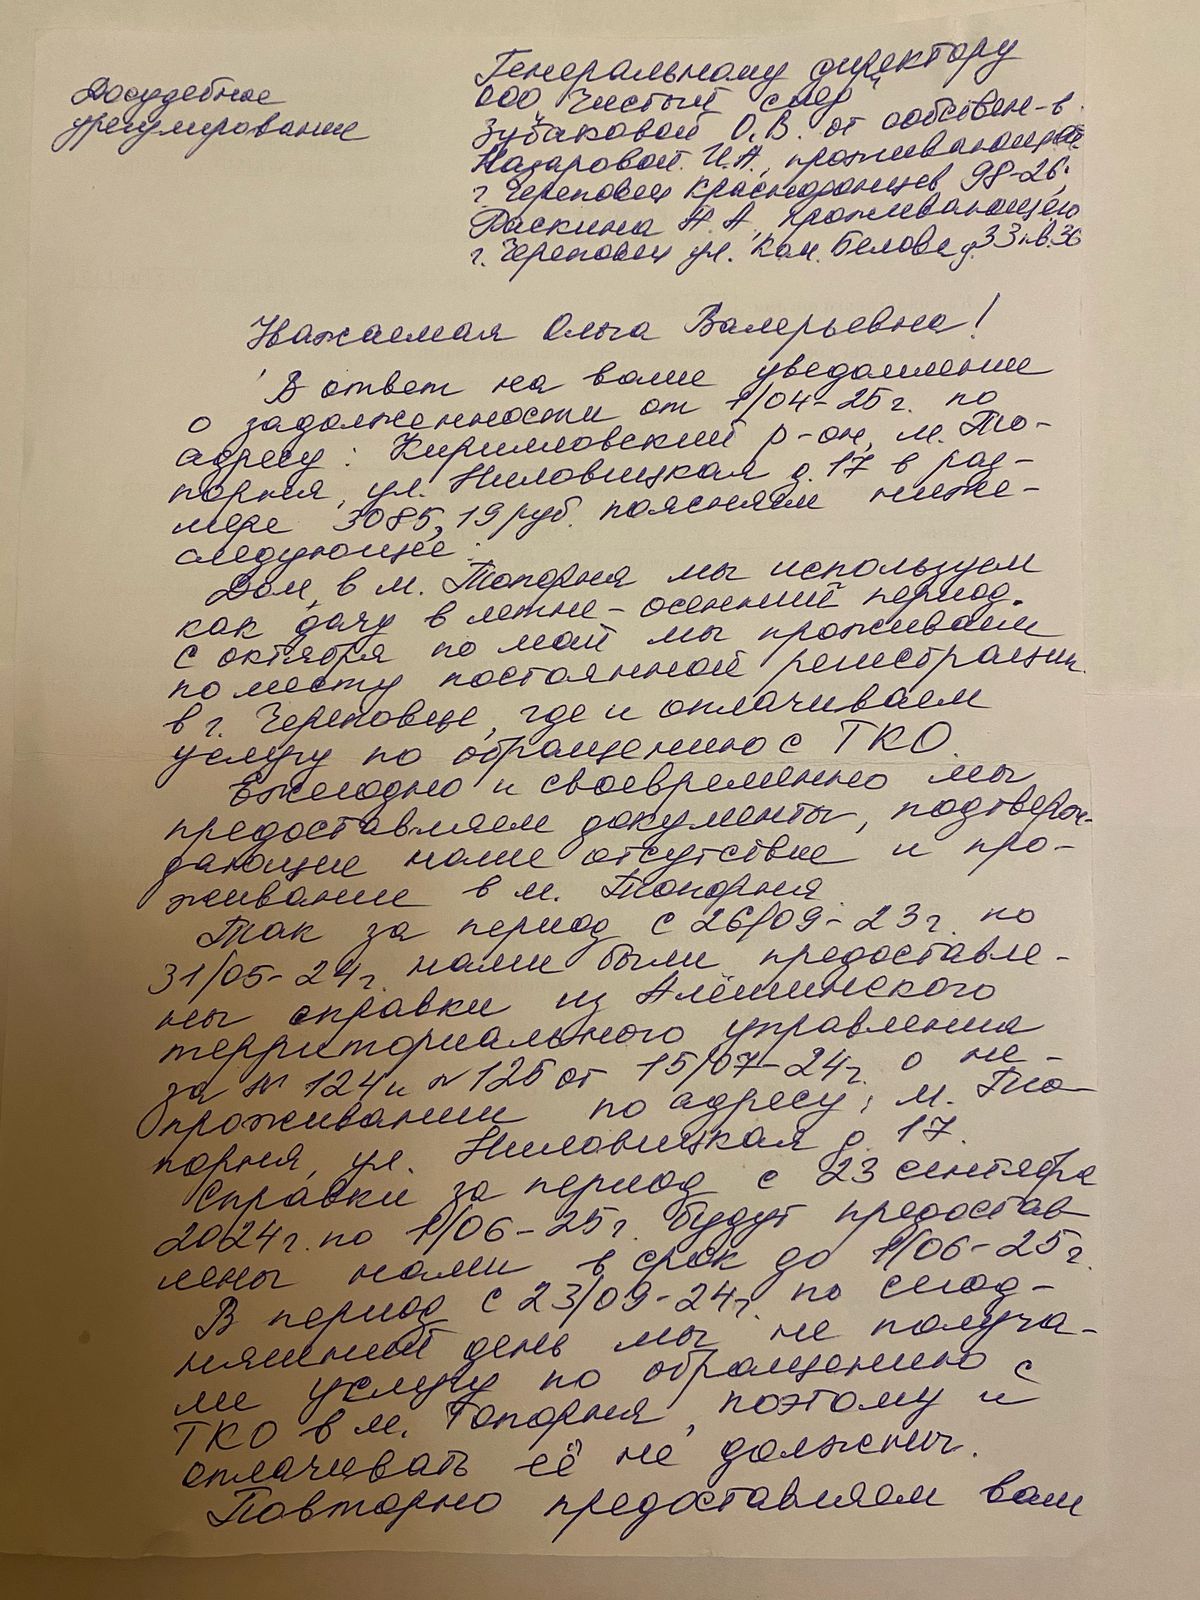 Досудебное
урегулирование
Генеральному директору
ООО "Чистый след"
Зубаковой О.В. от собствен-в
Назаровой И.А., проживающей
г. Череповец Краснодонцев 98-26,
Раскина А.А., проживающего
г. Череповец ул. Кам. Белова д.33 кв.36
Уважаемая Ольга Валерьевна!
В ответ на ваше уведомление
о задолженности от 1/04-25г. по
адресу: Кирилловский р-он, м. То-
порня, ул. Ниловицкая д. 17 в раз-
мере 3085,19 руб. поясняем ниже-
следующее:
Дом, в м. Топорня мы используем
как дачу в летне-осенний период.
С октября по май мы проживаем
по месту постоянной регистрации
в г. Череповце, где и оплачиваем
услугу по обращению с ТКО.
Ежегодно и своевременно мы
предоставляем документы, подтверж-
дающие наше отсутствие и про-
живание в м. Топорня.
Так за период с 26/09-23г. по
31/05-24г. нами были предоставле-
ны справки из Алёшинского
территориального управления
за № 124 и № 125 от 15/07-24г. о не-
проживании по адресу: м. То-
порня, ул. Ниловицкая д. 17.
Справки за период с 23 сентября
2024г. по 1/06-25г. будут предостав
лены нами в срок до 1/06-25г.
В период с 23/09-24г. по сегод-
няшний день мы не получа-
ли услугу по обращению с
ТКО в м. Топорня, поэтому и
оплачивать её не должны.
Повторно предоставляем вам